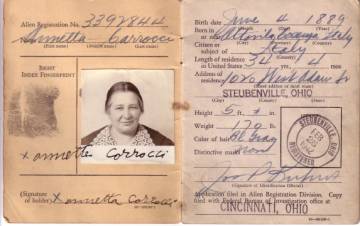 Alien Registration No. 3392844
Annetta Carrocci
(First name) (Middle name) (Last name)
RIGHT
INDEX FINGERPRINT
annetta Corrocci
(Signature
of holder) x annetta Corrocci
Birth date June 4 1889
(Month) (Day) (Year)
Born in
or near
(City) (Province) (Country)
Citizen or
subject of Italy
Length of residence
in United States 34 yrs., 4 mos.
Address of
residence
(Street address or rural route)
STEUBENVILLE, OHIO
(City) (County) (State)
Height 5 ft. in.
Weight 170 lb.
Color of hair
Distinctive marks
(Signature of Identification Official)
STEUBENVILLE
FEB
REGISTERED
Application filed in Alien Registration Division. Copy
filed with Federal Bureau of Investigation office at
CINCINNATI, OHIO